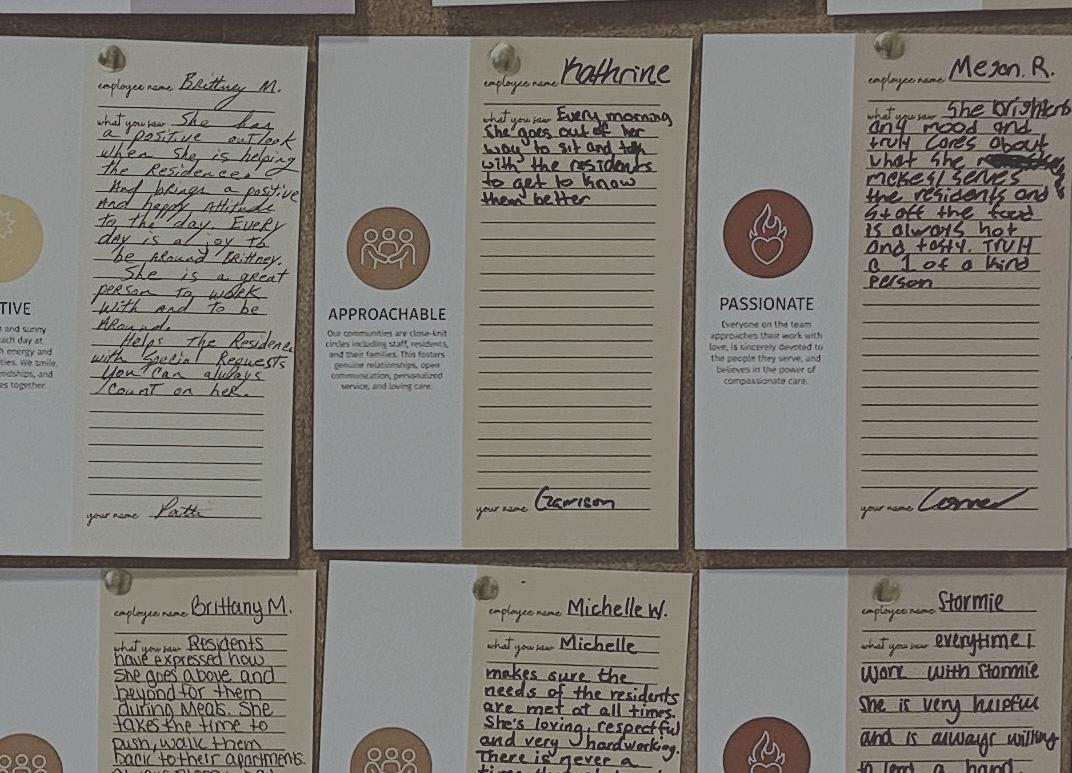 employee name Brittney M.
what you saw She has
a positive outlook
when she is helping
the Residences
And brings a positive
And happy Attitude
to the day. EVERY
day is a joy to
be Around Brittney.
She is a great
person to work
with and to be
Around.
Helps the Residence
with Special Requests
You can always
count on her.
your name Patti
TIVE
and sunny
each day at
h energy and
ties. We smile,
endships, and
es together.
employee name Kathrine
what you saw Every morning
She goes out of her
way to sit and talk
with the residents
to get to know
them better
your name Garrison
APPROACHABLE
Our communities are close-knit
circles including staff, residents,
and their families. This fosters
genuine relationships, open
communication, personalized
service, and loving care.
employee name Megan. R.
what you saw She brightens
any mood and
truly cares about
what she
makes/serves
the residents and
staff the food
is always hot
and tasty. Truly
a 1 of a kind
person
your name
PASSIONATE
Everyone on the team
approaches their work with
love, is sincerely devoted to
the people they serve, and
believes in the power of
compassionate care.
employee name Brittany M.
what you saw Residents
have expressed how
she goes above and
beyond for them
during Meals. She
takes the time to
push, walk them
back to their apartments.
employee name Michelle W.
what you saw Michelle
makes sure the
needs of the residents
are met at all times.
She's loving, respectful
and very hardworking.
There is never a
employee name Stormie
what you saw everytime I
work with Stormie
she is very helpful
and is always willing
to lend a hand